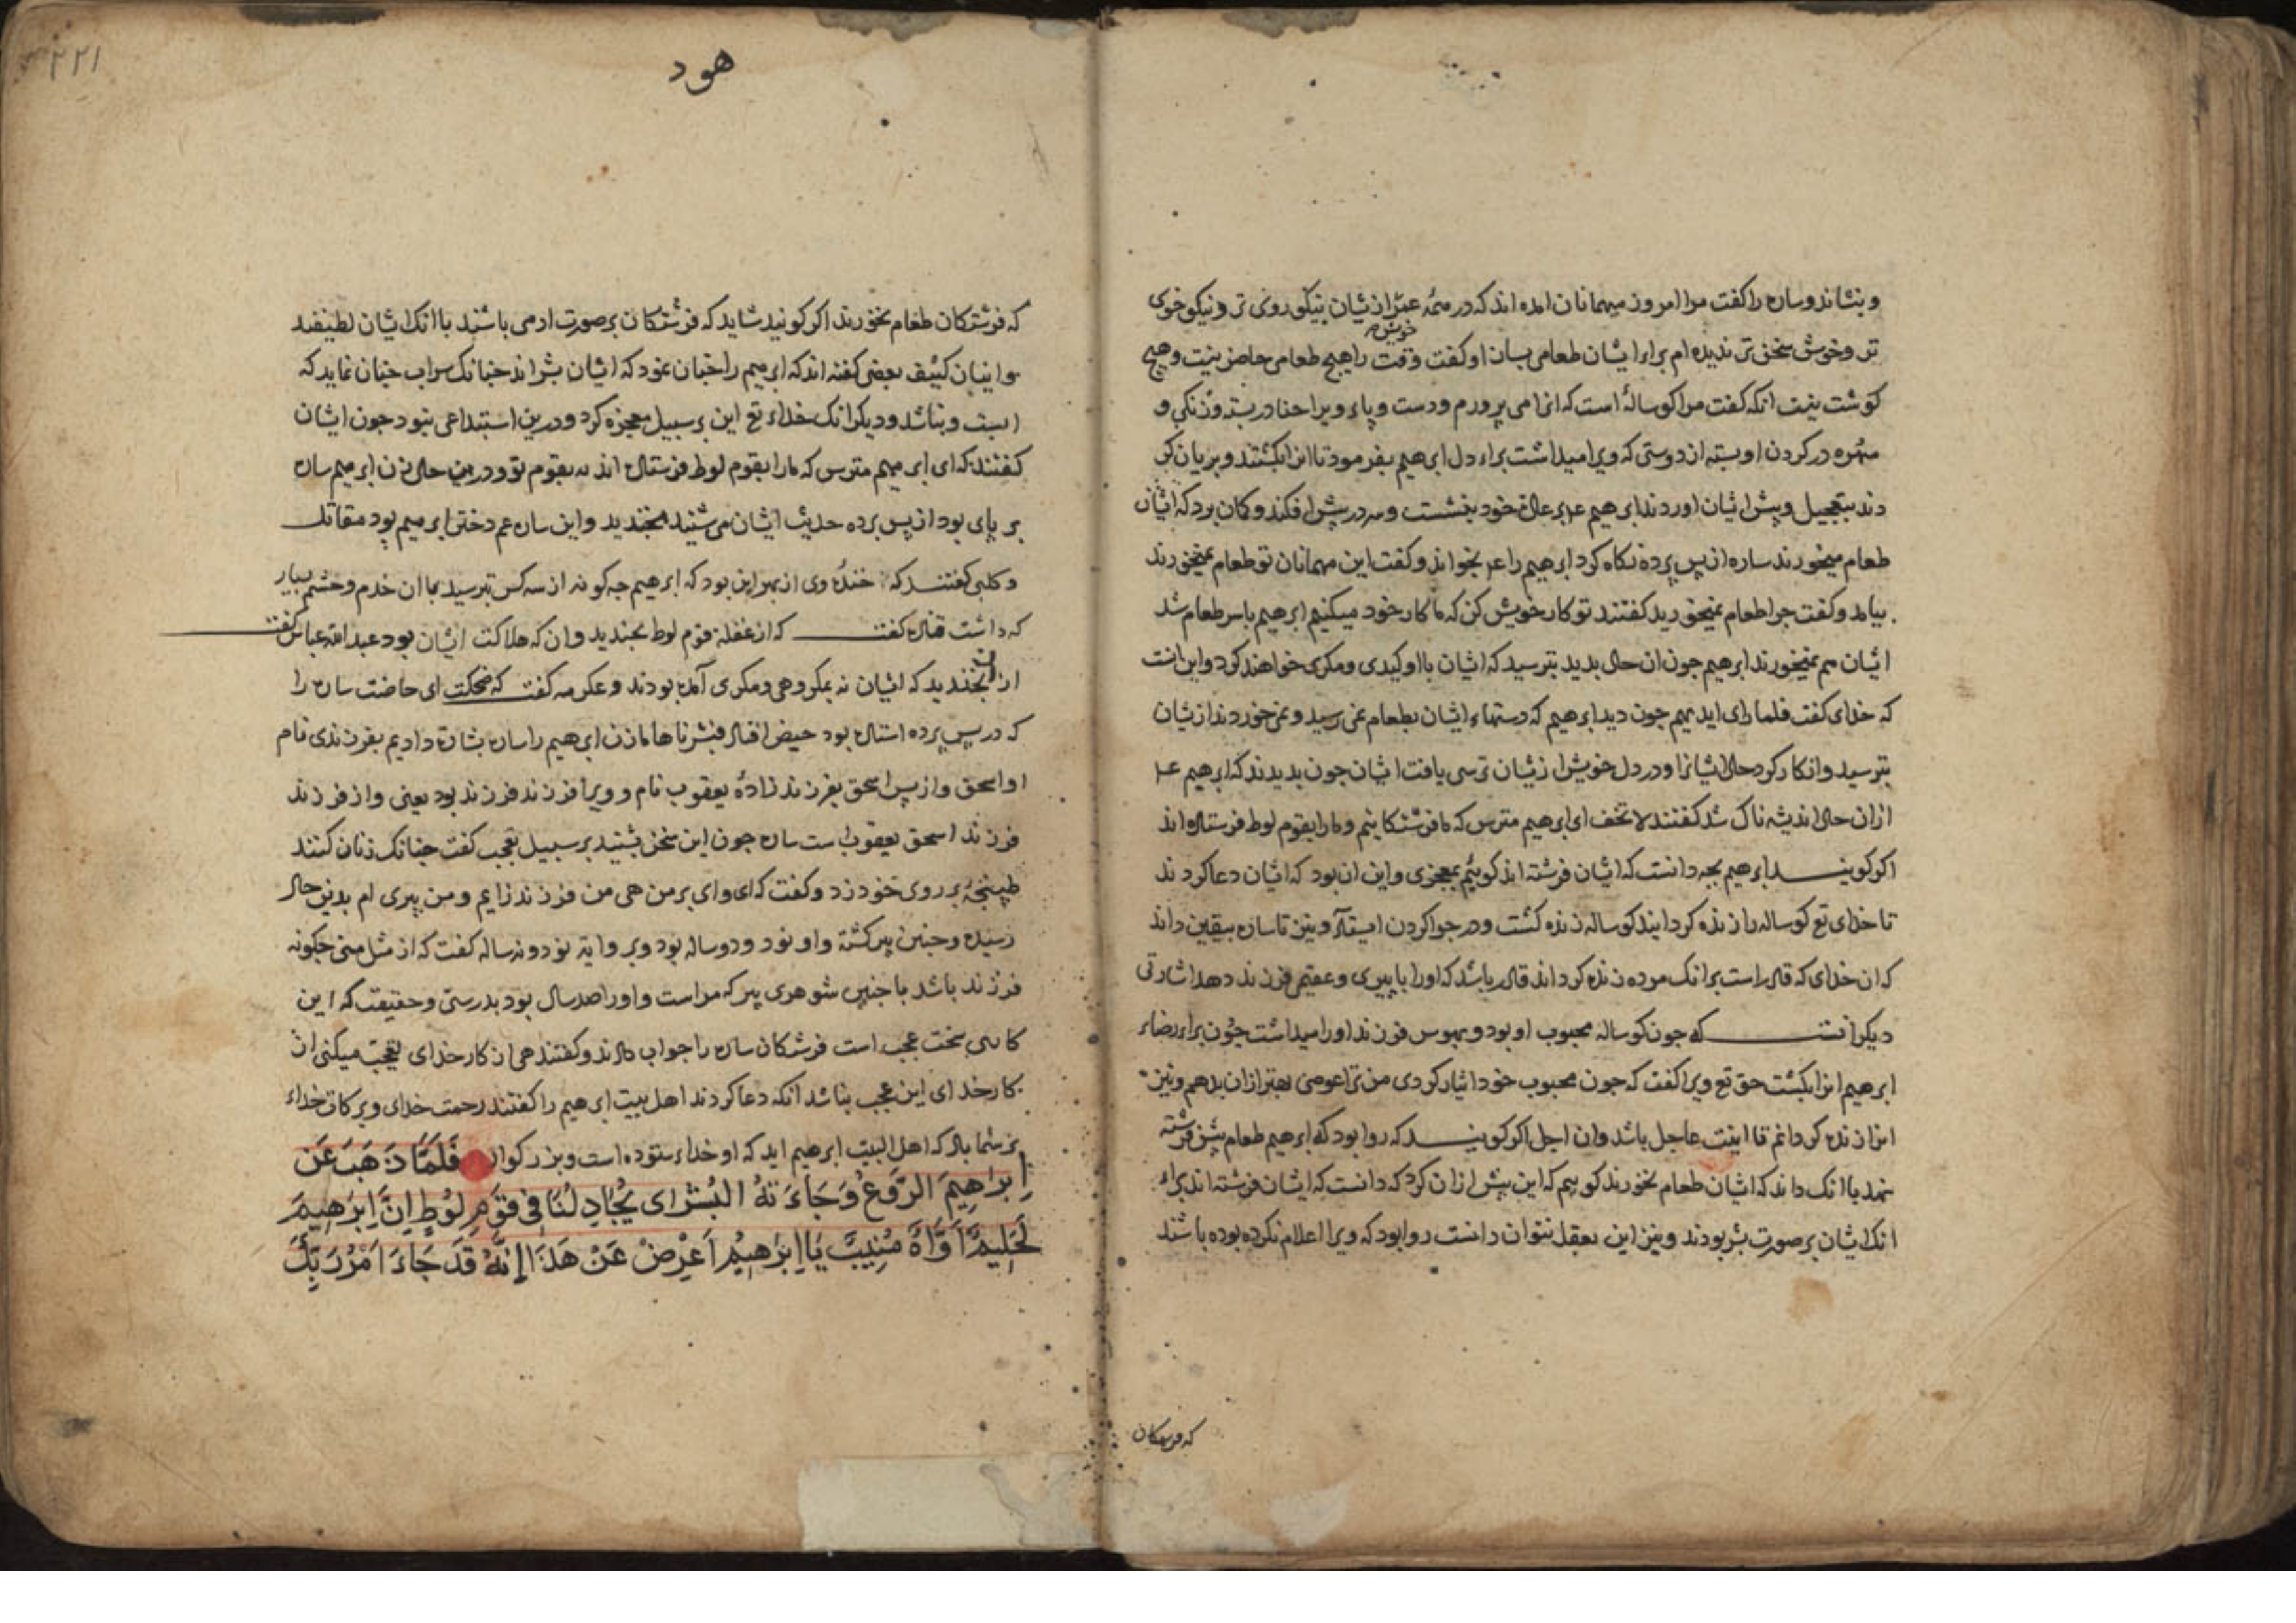 وبنشاند وساره را گفت مرا امروز میهمانان آمده اند که در همه عمر از ایشان نیکوروی تر ونیکوخوی
تر وخوش سخن تر ندیده ام براء ایشان طعامی بسان او گفت وقت را هیچ طعامی حاضر نیست وهیچ
خویش
کوشت نیست انکه گفت مرا کوساله است که انرا می پرورم ودست وپاء ویرا حنا در بسته وزنکی و
مهره در کردن او بسته از دوستی که ویرا میداشت براء دل ابرهیم بفرمود تا انرا بکشتند وبریان کر
دند بتعجیل وپیش ایشان اوردند ابرهیم عم بر عادة خود بنشست وسر در پیش افکند وکمان برد که ایشان
طعام میخورند ساره از پس پرده نکاه کرد ابرهیم را عم بخواند وکفت این مهمانان تو طعام نمیخورند
بیامد وکفت چرا طعام نمیخورید کفتند تو کار خویش کن که ما کار خود میکنیم ابرهیم باسر طعام شد
ایشان هم نمیخورند ابرهیم چون ان حال بدید بترسید که ایشان با او کیدی ومکری خواهند کرد واین انست
که خدای کفت فلما رای ایدیهم چون دید ابرهیم که دستهاء ایشان بطعام نمی رسید ونمی خوردند از یشان
بترسید وانکار کرد حال ایشانرا ودر دل خویش از یشان ترسی یافت ایشان چون بدیدند که ابرهیم عم
ازان حال اندیشه ناک شد کفتند لا تخف ای ابرهیم مترس که ما فرشتکانیم ومارا بقوم لوط فرستاده اند
اکر کویند ابرهیم بچه دانست که ایشان فرشته اند کوئیم بمعجزی واین ان بود که ایشان دعا کردند
تا خدای تع کوساله را زنده کردانید کوساله زنده کشت ودر چرا کردن ایستاد ونیز تا ساره بیقین داند
که ان خدای که قادر است بر انک مرده زنده کرداند قادر باشد که اورا با پیری وعقیمی فرزند دهد اشارتی
دیکر انست که چون کوساله محبوب او بود وبهوس فرزند اورا میداشت چون براء رضاء
ابرهیم انرا بکشت حق تع ویرا کفت که چون محبوب خود ایثار کردی من ترا عوضی بهتر ازان بدهم ونیز
انرا زنده کردانم تا اینت عاجل باشد وان اجل اکر کویند که روا بود که ابرهیم طعام پیش فرشته
نهد با انک داند که ایشان طعام نخورند کوییم که این پیش ازان کرد که دانست که ایشان فرشته اند براء
انک ایشان بر صورت بشر بودند ونیز این بعقل نتوان دانست روا بود که ویرا اعلام نکرده بوده باشند
که فرشتکان
۲۲۱
هود
که فرشتکان طعام نخورند اکر کویند شاید که فرشتکان بر صورت ادمی باشند با انک ایشان لطیفند
وانیان کثیف بعضی کفته اند که ابرهیم را چنان نمود که ایشان بشراند چنانک سراب چنان نماید که
ابست ونباشد ودیکر انک خداء تع این بر سبیل معجزه کرد ودرین استبداعی نبود چون ایشان
کفتند که ای ابرهیم مترس که مارا بقوم لوط فرستاده اند نه بقوم تو ودرین حال زن ابرهیم ساره
بر پای بود از پس پرده حدیث ایشان می شنید بخندید واین ساره عم دختر ابرهیم بود مقاتل
وکلبی کفتند که خنده وی از بهر این بود که ابرهیم چه کونه از سه کس بترسید با ان خدم وحشم بسیار
که داشت قتاده کفت که از غفلة قوم لوط بخندید وان که هلاکت ایشان بود عبدالله عباس کفت
از ان بخندید که ایشان نه بمکروهی ومکری آمده بودند وعکرمه کفت که ضحکت ای حاضت ساره را
که در پس پرده استاده بود حیض افتاد فبشرناها ما زن ابرهیم را ساره بشارة دادیم بفرزندی نام
او اسحق واز پس اسحق بفرزندزاده یعقوب نام وویرا فرزند فرزند بود یعنی واز فرزند
فرزند اسحق یعقوب است ساره چون این سخن بشنید بر سبیل تعجب کفت چنانک زنان کنند
طپنجه بر روی خود زد وکفت که ای وای بر من هی من فرزند زایم ومن پیری ام بدین حال
رسیده وچنین پیر کشته واو نود ودو ساله بود وبر وایة نود ونه ساله کفت که از مثل منی چکونه
فرزند باشد با چنین شوهری پیر که مراست واورا صد سال بود بدرستی وحقیقت که این
کاری سخت عجب است فرشتکان ساره را جواب دادند وکفتند هی از کار خدای تعجب میکنی از
کار خدای این عجب نباشد انکه دعا کردند اهل بیت ابرهیم را کفتند رحمت خدای وبرکات خداء
بر شما باد که اهل البیت ابرهیم اید که او خداء ستوده است وبزرکوار فَلَمَّا ذَهَبَ عَن
اِبرٰهِیمَ الرَّوعُ وَجَاءَتهُ البُشرٰی یُجَادِلُنَا فِی قَومِ لُوطٍ اِنَّ اِبرٰهِیمَ
لَحَلِیمٌ اَوَّاهٌ مُنِیبٌ یَا اِبرٰهِیمُ اَعرِض عَن هَذَا اِنَّهُ قَد جَاءَ اَمرُ رَبِّکَ